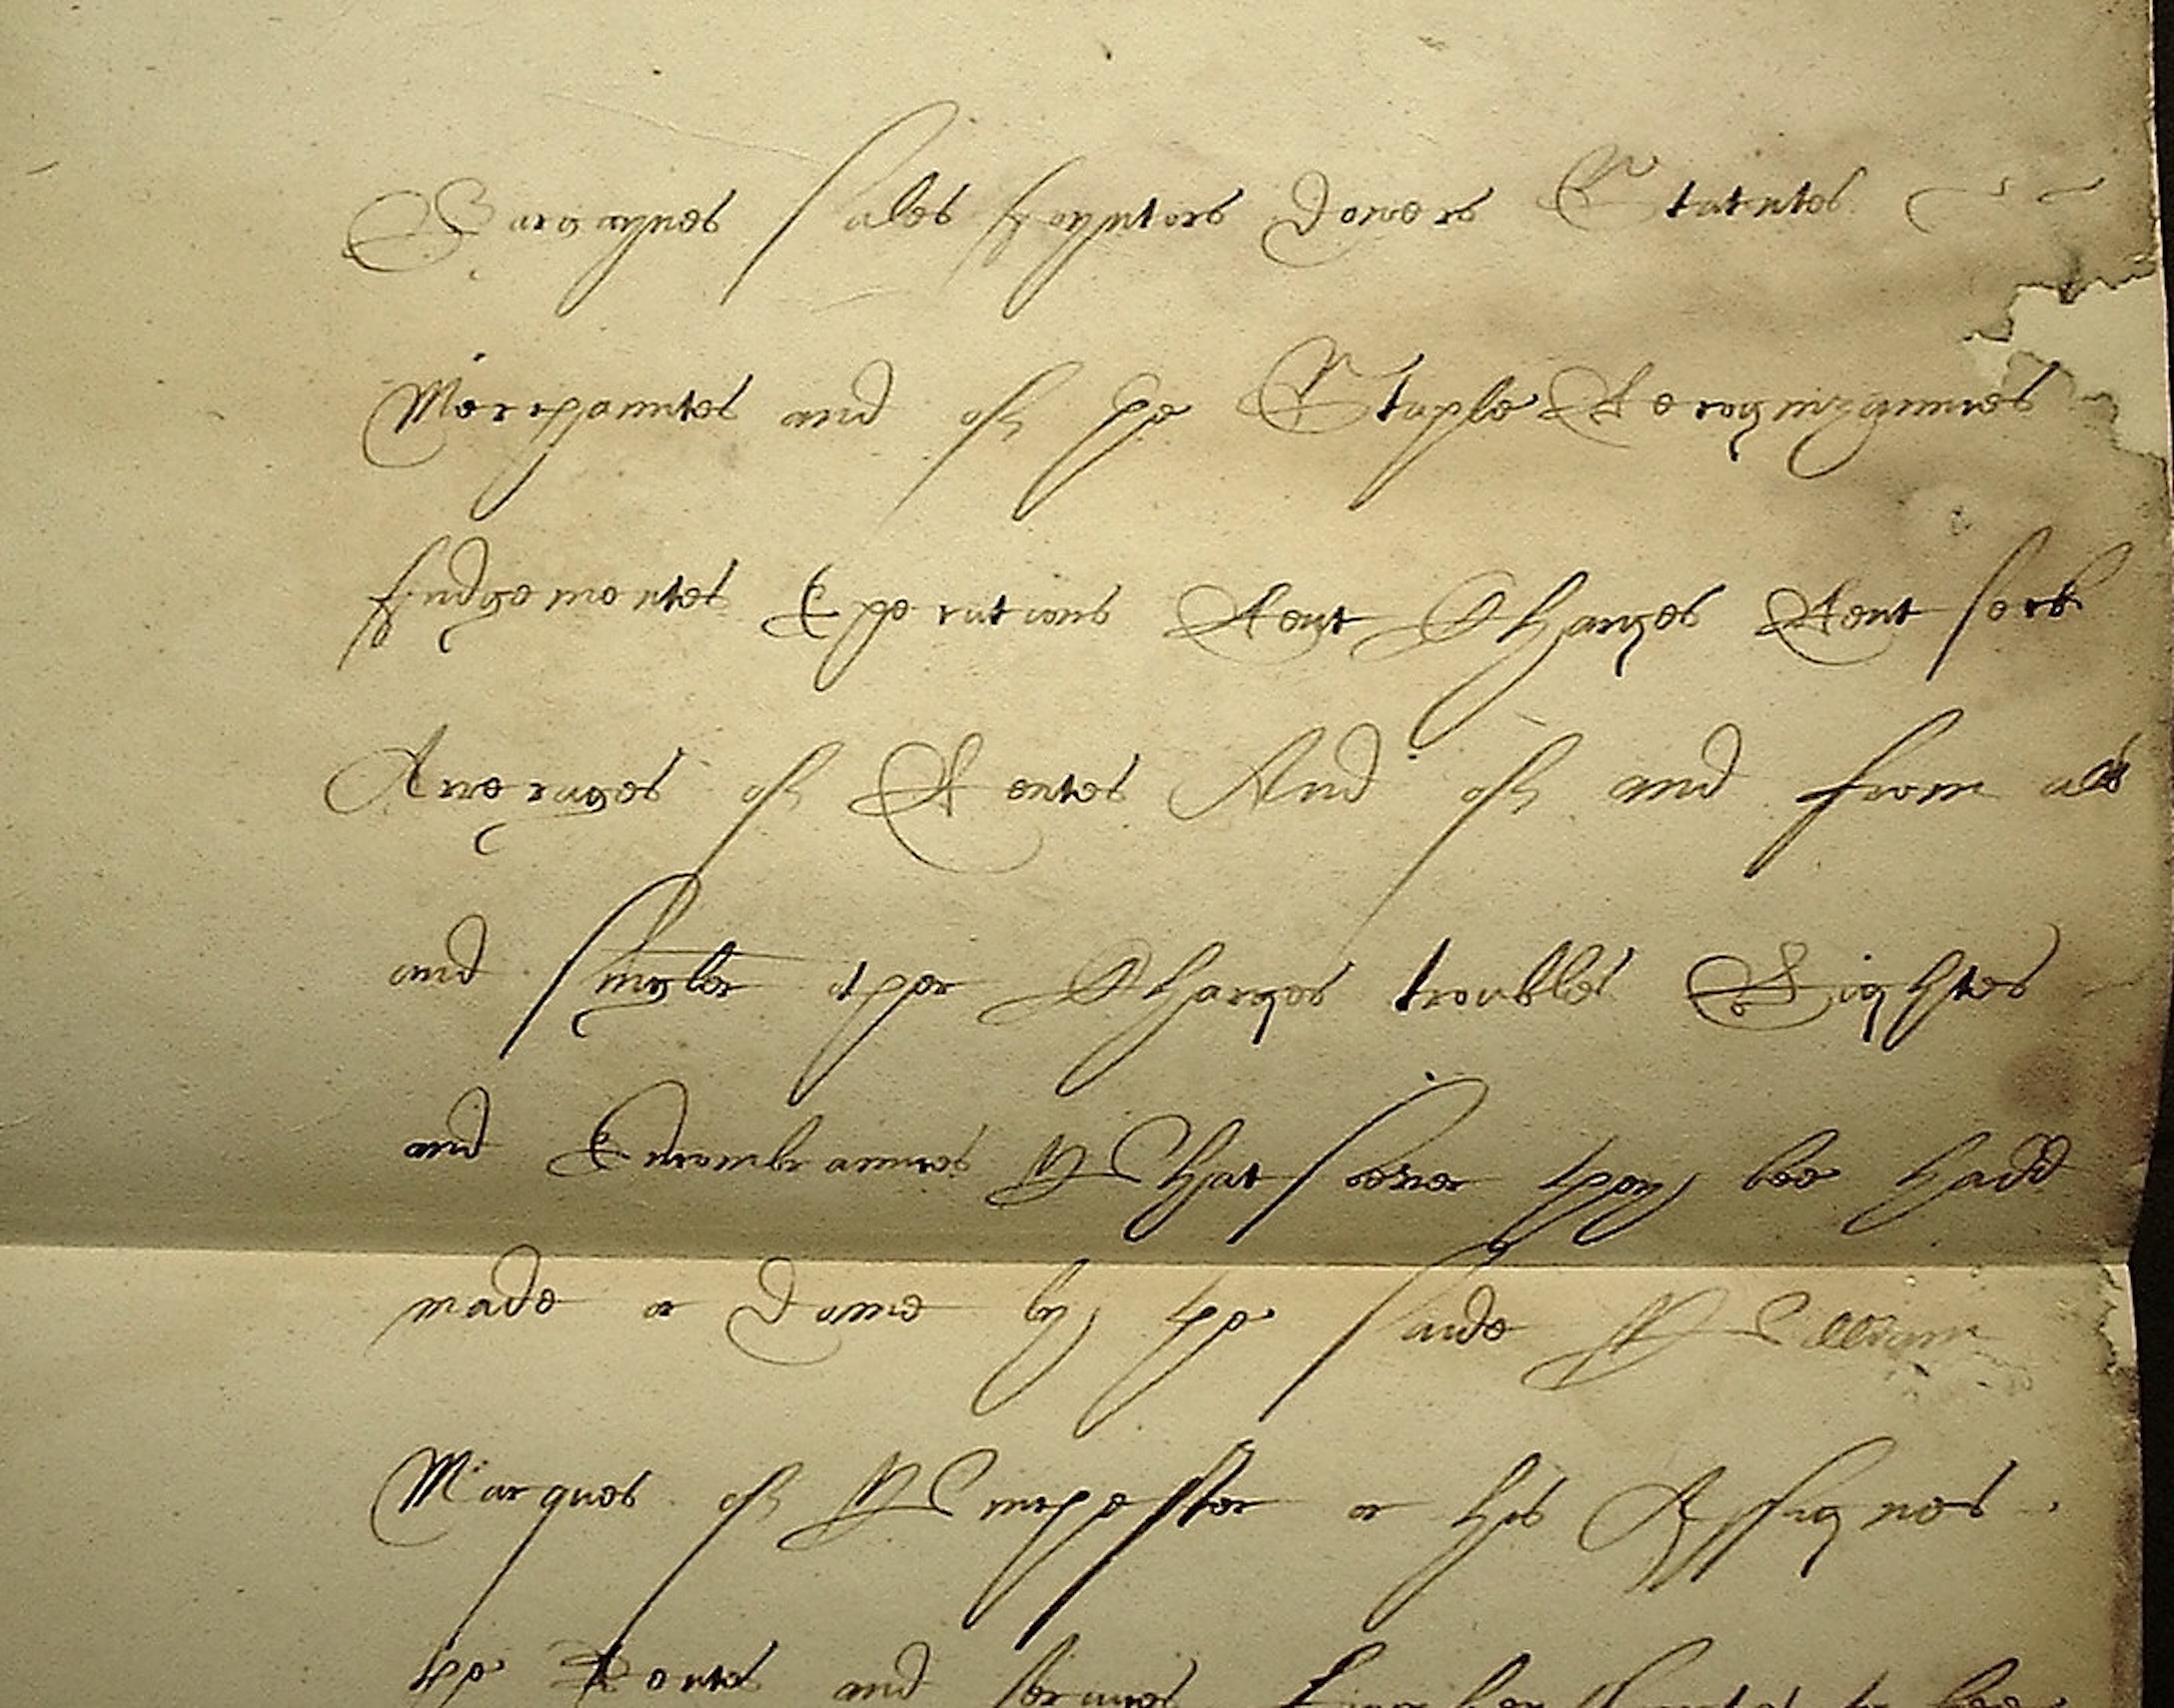 Bargaynes Sales Joyntors Dowers Statutes
Merchanntes and of the Staple Recognizaunces
Judgementes Execucions Rent Charges Rent seck
Arrerages of Rentes And of and from all
and Singler other Charges troubles Rightes
and Encombraunces Whatsoever they bee hadd
made or Donne by the saide William
Marques of Winchester or his Assignes
the Rentes and servics